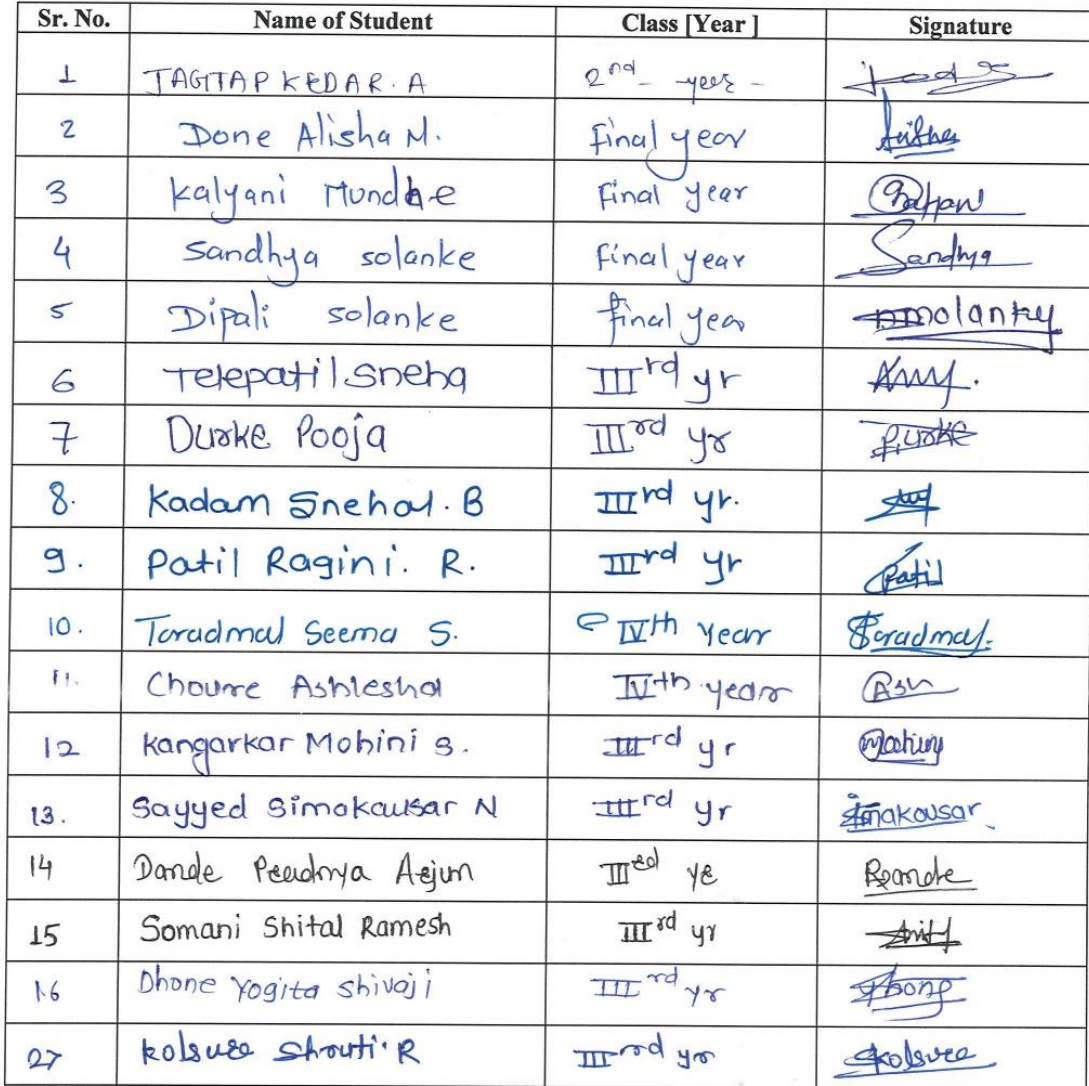 Sr. No. Name of Student Class [Year ] Signature
1 JAGTAP KEDAR. A 2nd year
2 Done Alisha M. Final year
3 Kalyani Mundhe Final year
4 Sandhya solanke Final year Sandhya
5 Dipali solanke final year
6 Telepatil Sneha IIIrd yr
7 Durke Pooja IIIrd yr Durke
8. Kadam Snehal. B IIIrd yr.
9. Patil Ragini. R. IIIrd yr Patil
10. Taradmal Seema S. IVth Year Taradmal.
11. Choure Ashlesha IVth year Ash
12 Kangarkar Mohini S. IIIrd yr
13. Sayyed Simakausar N IIIrd yr Simakousar
14 Dande Pradnya Arjun IIIrd yr
15 Somani Shital Ramesh IIIrd yr
16 Dhone Yogita Shivaji IIIrd yr
27 Kolsure Shruti. R IIIrd yr Kolsure